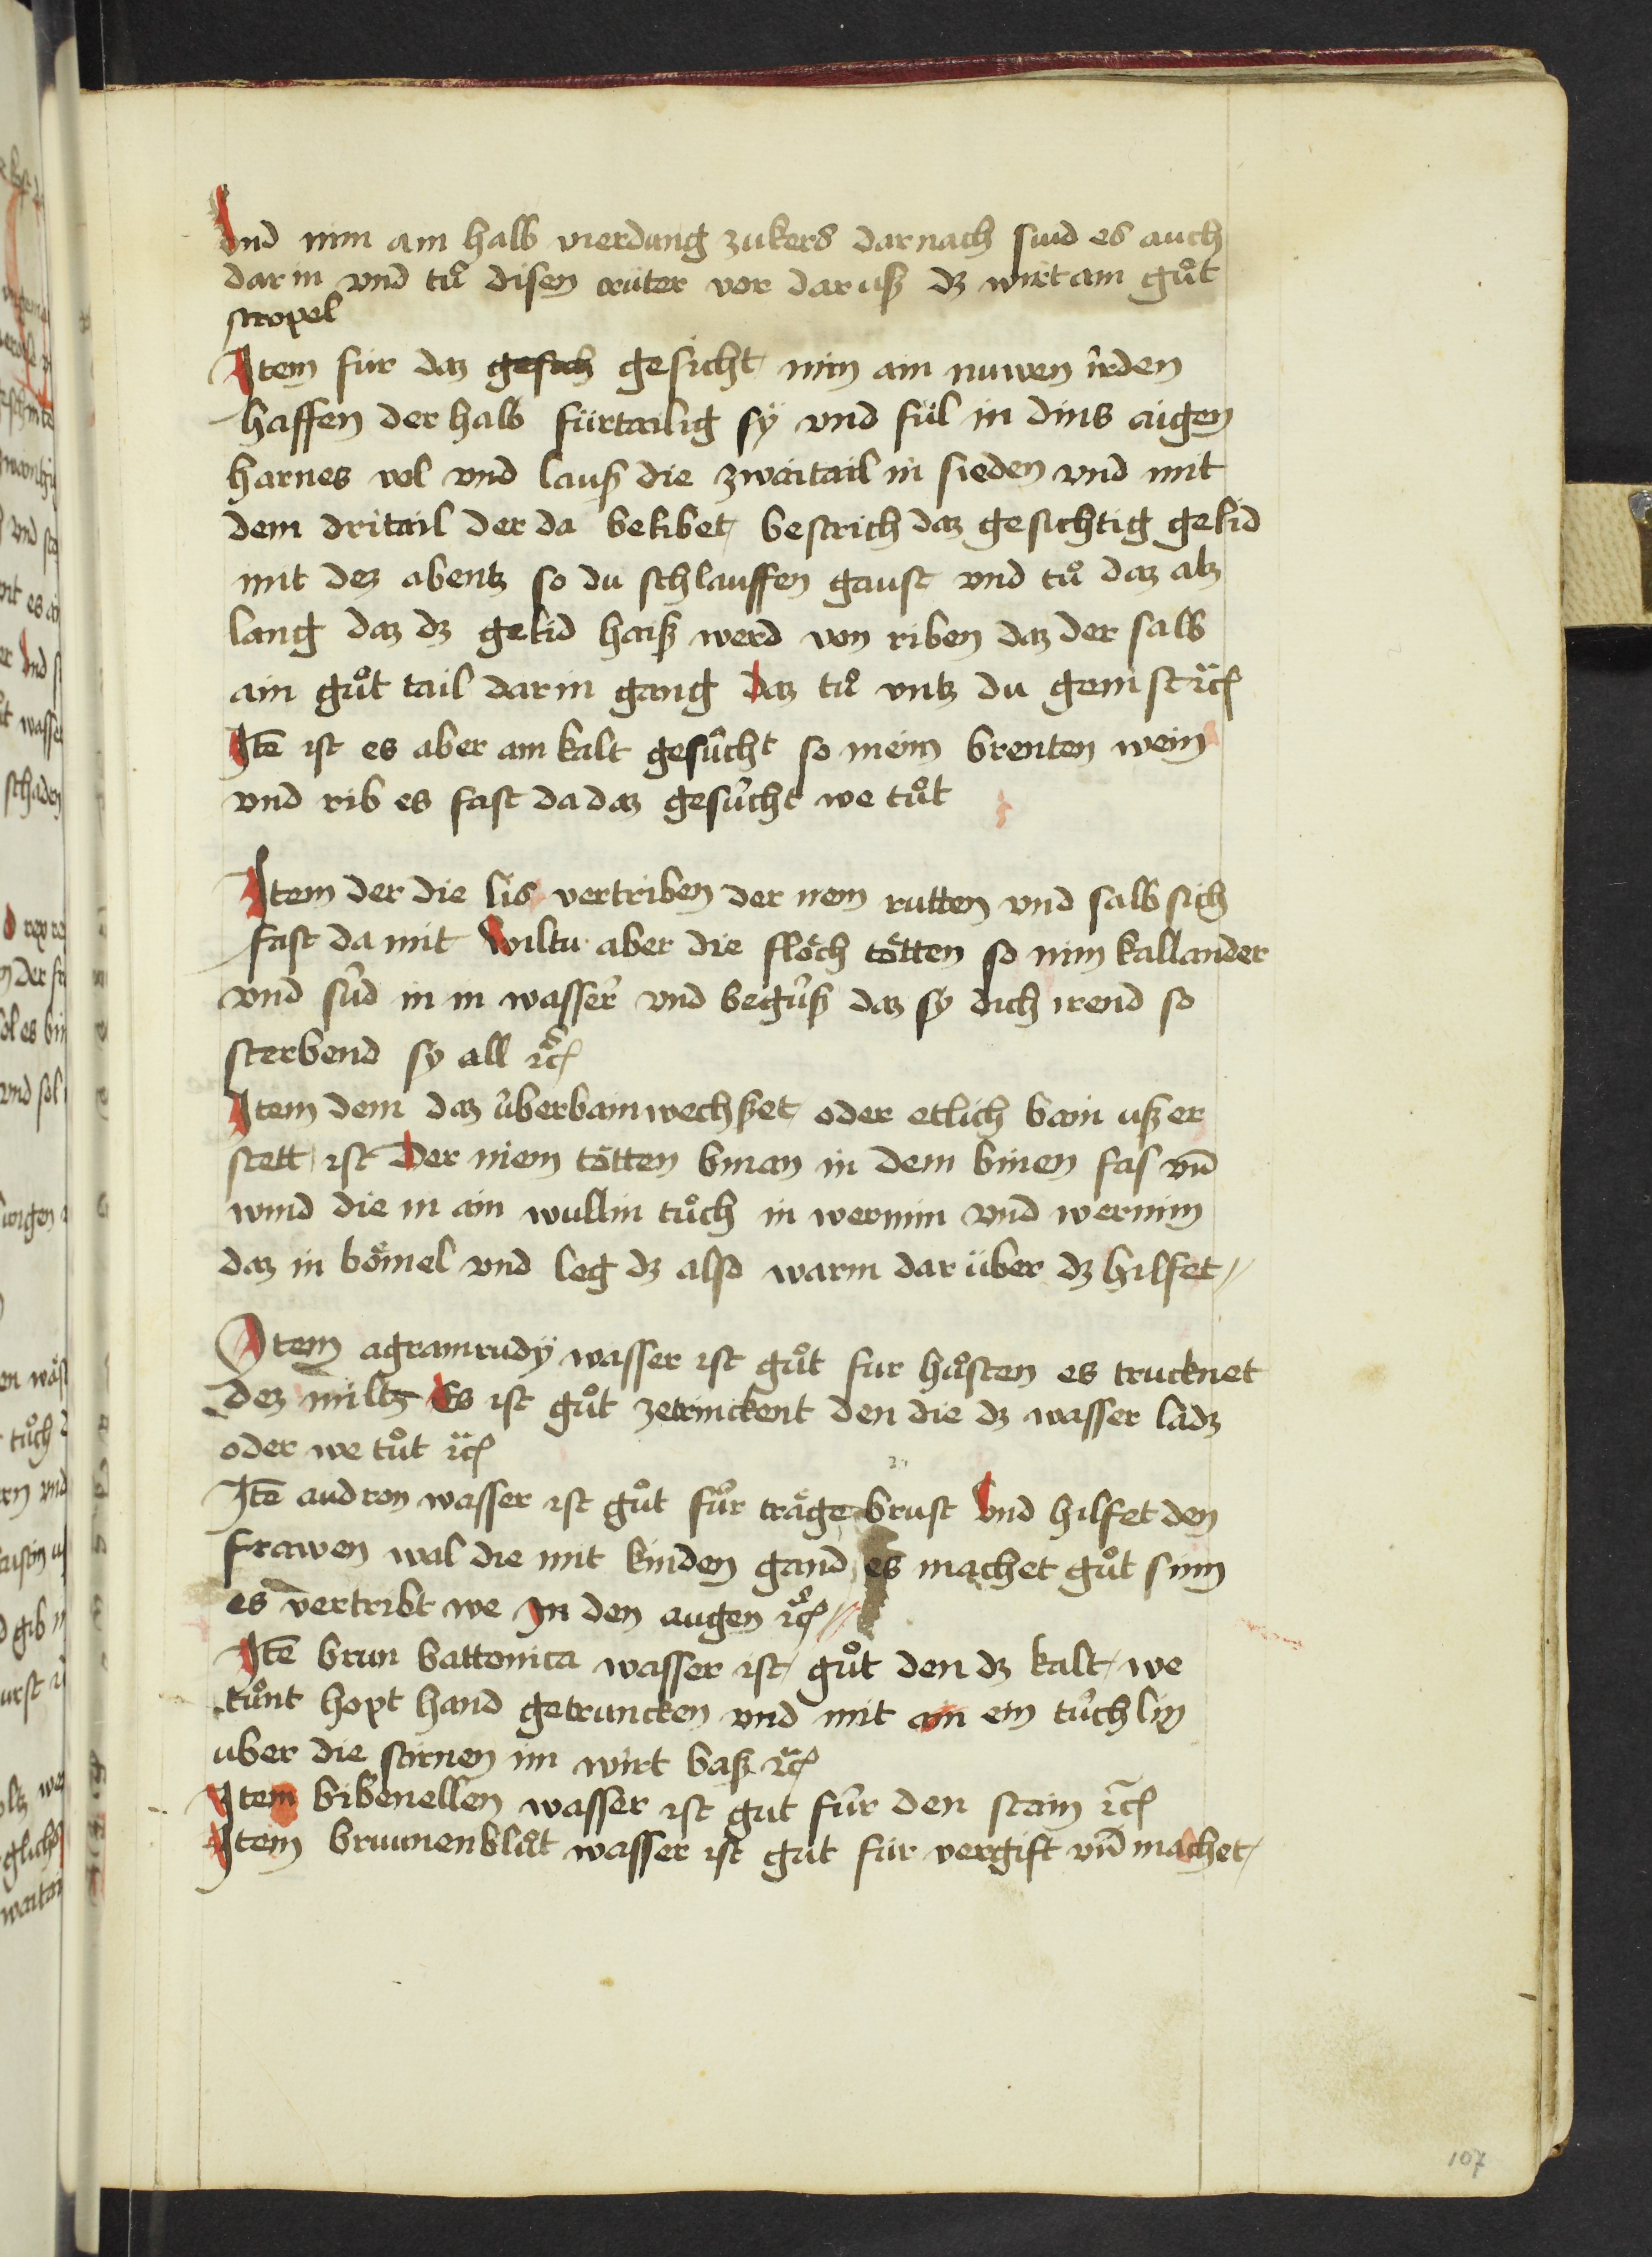 Vnd nim ain halb vierdung zukers darnach sud es auch
dar in vnd tuͦ disen crüter vor dar uß dz wirt ain guͦt
siropel
Item für daz gesuch gesücht nim ain nuwen irden
haffen der halb fürtailig sÿ vnd fül in dins aigen
harnes vol vnd lauß die zwaitail in sieden vnd mit
dem dritail der da belibet bestrich daz gesichtig gelid
mit dez abentz so du schlauffen gaust vnd tuͦ daz alz
lang daz dz gelid haiß werd von riben daz der salb
ain guͦt tail dar in gang daz tuͦ vntz du genist ꝛc̃
Itē ist es aber ain kalt gesücht so nem brenten wein
vnd rib es fast da daz gesücht we tuͦt
Item der die lis vertriben der nem rutten vnd salb sich
fast da mit Wiltu aber die flöch tötten so nim kallander
vnd süd in in wasser vnd begüß daz sy dich irend so
sterbend sy all ꝛc̃
Item dem daz überbain wechset oder etlich bain uß er
stett ist Der niem tötten binan in dem binen fas vn̄
wind die in ain wullin tuͦch in wermin vnd wermin
daz in bömel vnd leg dz also warm dar über dz hilfet
Item agramudÿ wasser ist guͦt fur huͦsten es trucknet
dez miltz Es ist guͦt zetrinckent den die dz wasser ladz
oder we tuͦt ꝛc̃
Itē audron wasser ist guͦt für träge brust Vnd hilfet den
frawen wal die mit kinden gand es machet guͦt sinn
es vertribt we In den augen ꝛc̃
Itē brun battonica wasser ist guͦt den dz kalt we
tuͦnt hopt hand getruncken vnd mit ain ein tuͤchlin
uber die stirnen im wirt baß ꝛc̃
Item bibenellen wasser ist gut für den stain ꝛc̃
Item brunnenbluͦt wasser ist gut für vergift vn̄ machet
107